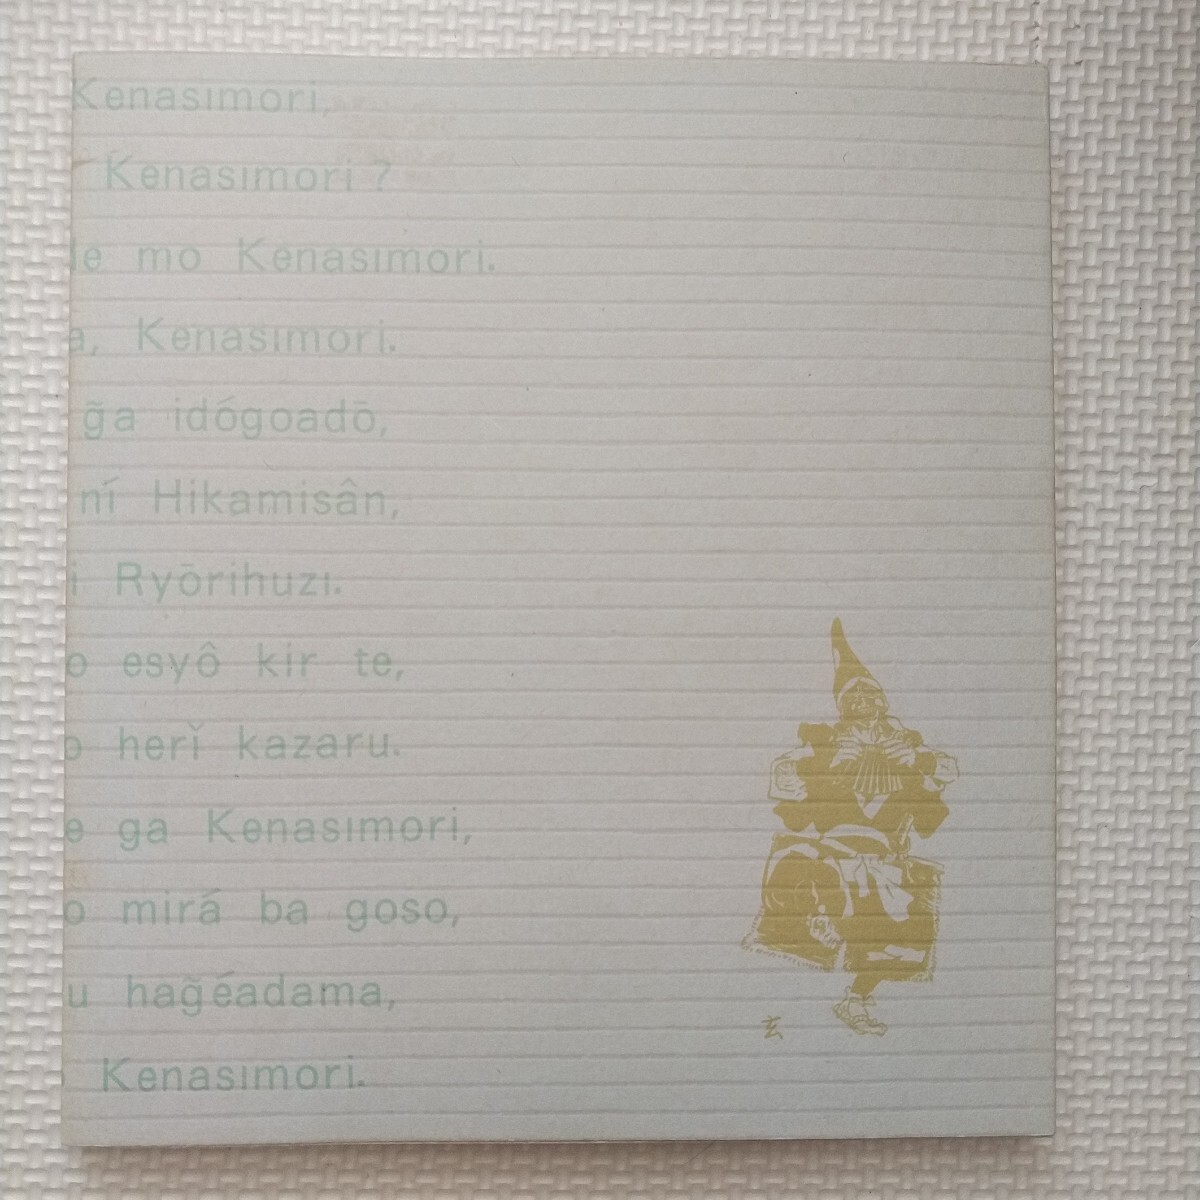 Kenasımori,
Kenasımori ?
de mo Kenasımori.
a, Kenasımori.
g̃a idógoadō,
ní Hikamisân,
i Ryōrihuzı.
o esyô kir te,
o herǐ kazaru.
e ga Kenasımori,
o mirá ba goso,
u hag̃éadama,
Kenasımori.
玄